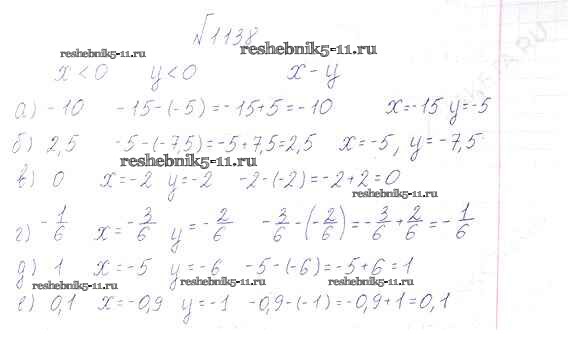 №1138
reshebnik5-11.ru reshebnik5-11.ru
x < 0 y < 0 x - y
а) -10 -15-(-5)=-15+5=-10 x=-15 y=-5
б) 2,5 -5-(-7,5)=-5+7,5=2,5 x=-5, y=-7,5
reshebnik5-11.ru
в) 0 x=-2 y=-2 -2-(-2)=-2+2=0
reshebnik5-11.ru
г) -1/6 x=-3/6 y=-2/6 -3/6-(-2/6)=-3/6+2/6=-1/6
д) 1 x=-5 y=-6 -5-(-6)=-5+6=1
reshebnik5-11.ru reshebnik5-11.ru reshebnik5-11.ru
е) 0,1 x=-0,9 y=-1 -0,9-(-1)=-0,9+1=0,1